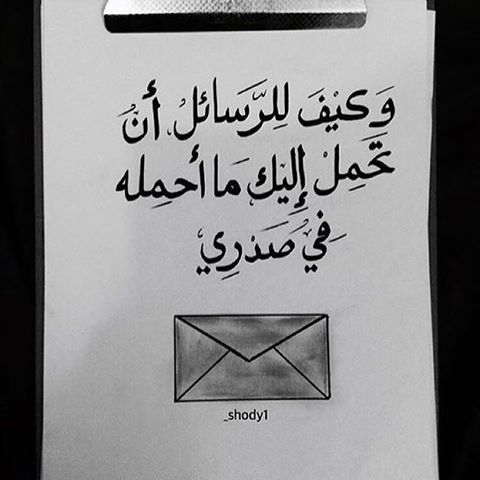 وَكيْفَ لِلرَّسَائلُ أنُ
تَحَمِلْ إِليْكِ مَا أحمِله
فِيْ صَدْرِي
_shody1